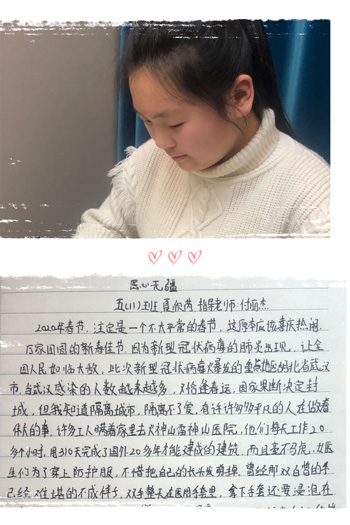 爱心无疆
五(11)班 夏欣芮 指导老师:付丽杰
2020年春节,注定是一个不太平常的春节,这原本应该喜庆热闹,
万家团圆的新春佳节,因为新型冠状病毒的肺炎出现,让全
国人民如临大敌,此次新型冠状病毒爆发的重点地区湖北省武汉
市,当武汉感染的人数越来越多,又恰逢春运,国家果断决定封
城,但我知道隔离城市,隔离不了爱,有许许多多平凡的人在做着
伟大的事,许多工人瞒着家里去火神山雷神山医院,他们每天工作20
多个小时,用310天完成了国外20多年才能建成的建筑,而且毫不马虎,女医
生们为了穿上防护服,不惜把自己的长头发剪掉,曾经那双白皙的手
已经难堪的不成样子,双手整天在医用手套里,拿下手套还要浸泡在